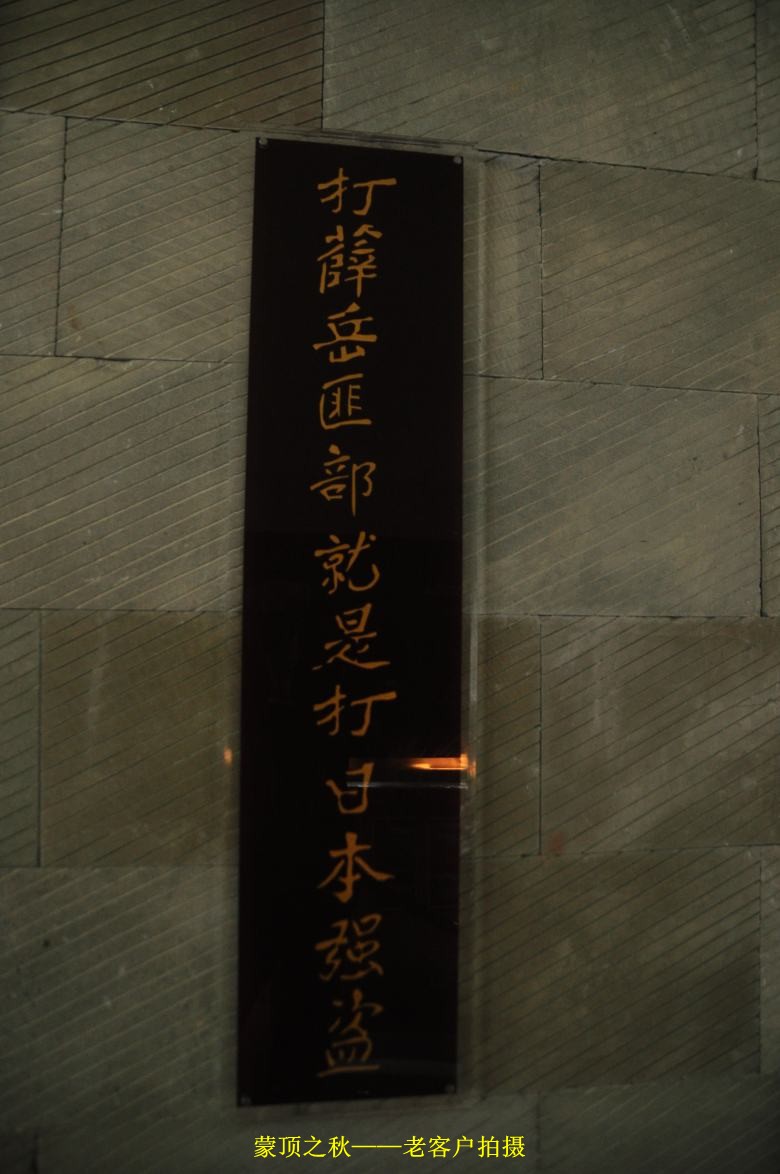 打薛岳匪部就是打日本强盗
蒙顶之秋——老客户拍摄